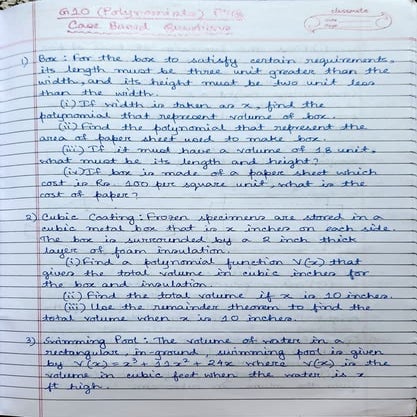 G10 (Polynomials)
classmate
Case Based Questions
1) Box: For the box to satisfy certain requirements,
its length must be three unit greater than the
width, and its height must be two unit less
than the width.
(i) If width is taken as x, find the
polynomial that represent volume of box.
(ii) Find the polynomial that represent the
area of paper sheet used to make box.
(iii) If it must have a volume of 18 unit,
what must be its length and height?
(iv) If box is made of a paper sheet which
cost is Rs. 100 per square unit, what is the
cost of paper?
2) Cubic Coating: Frozen specimens are stored in a
cubic metal box that is x inches on each side.
The box is surrounded by a 2 inch thick
layer of foam insulation.
(i) Find a polynomial function V(x) that
gives the total volume in cubic inches for
the box and insulation.
(ii) Find the total volume if x is 10 inches.
(iii) Use the remainder theorem to find the
total volume when x is 10 inches.
3) Swimming Pool: The volume of water in a
rectangular, in-ground, swimming pool is given
by V(x) = x³ + 11x² + 24x where V(x) is the
volume in cubic feet when the water is x
ft high.